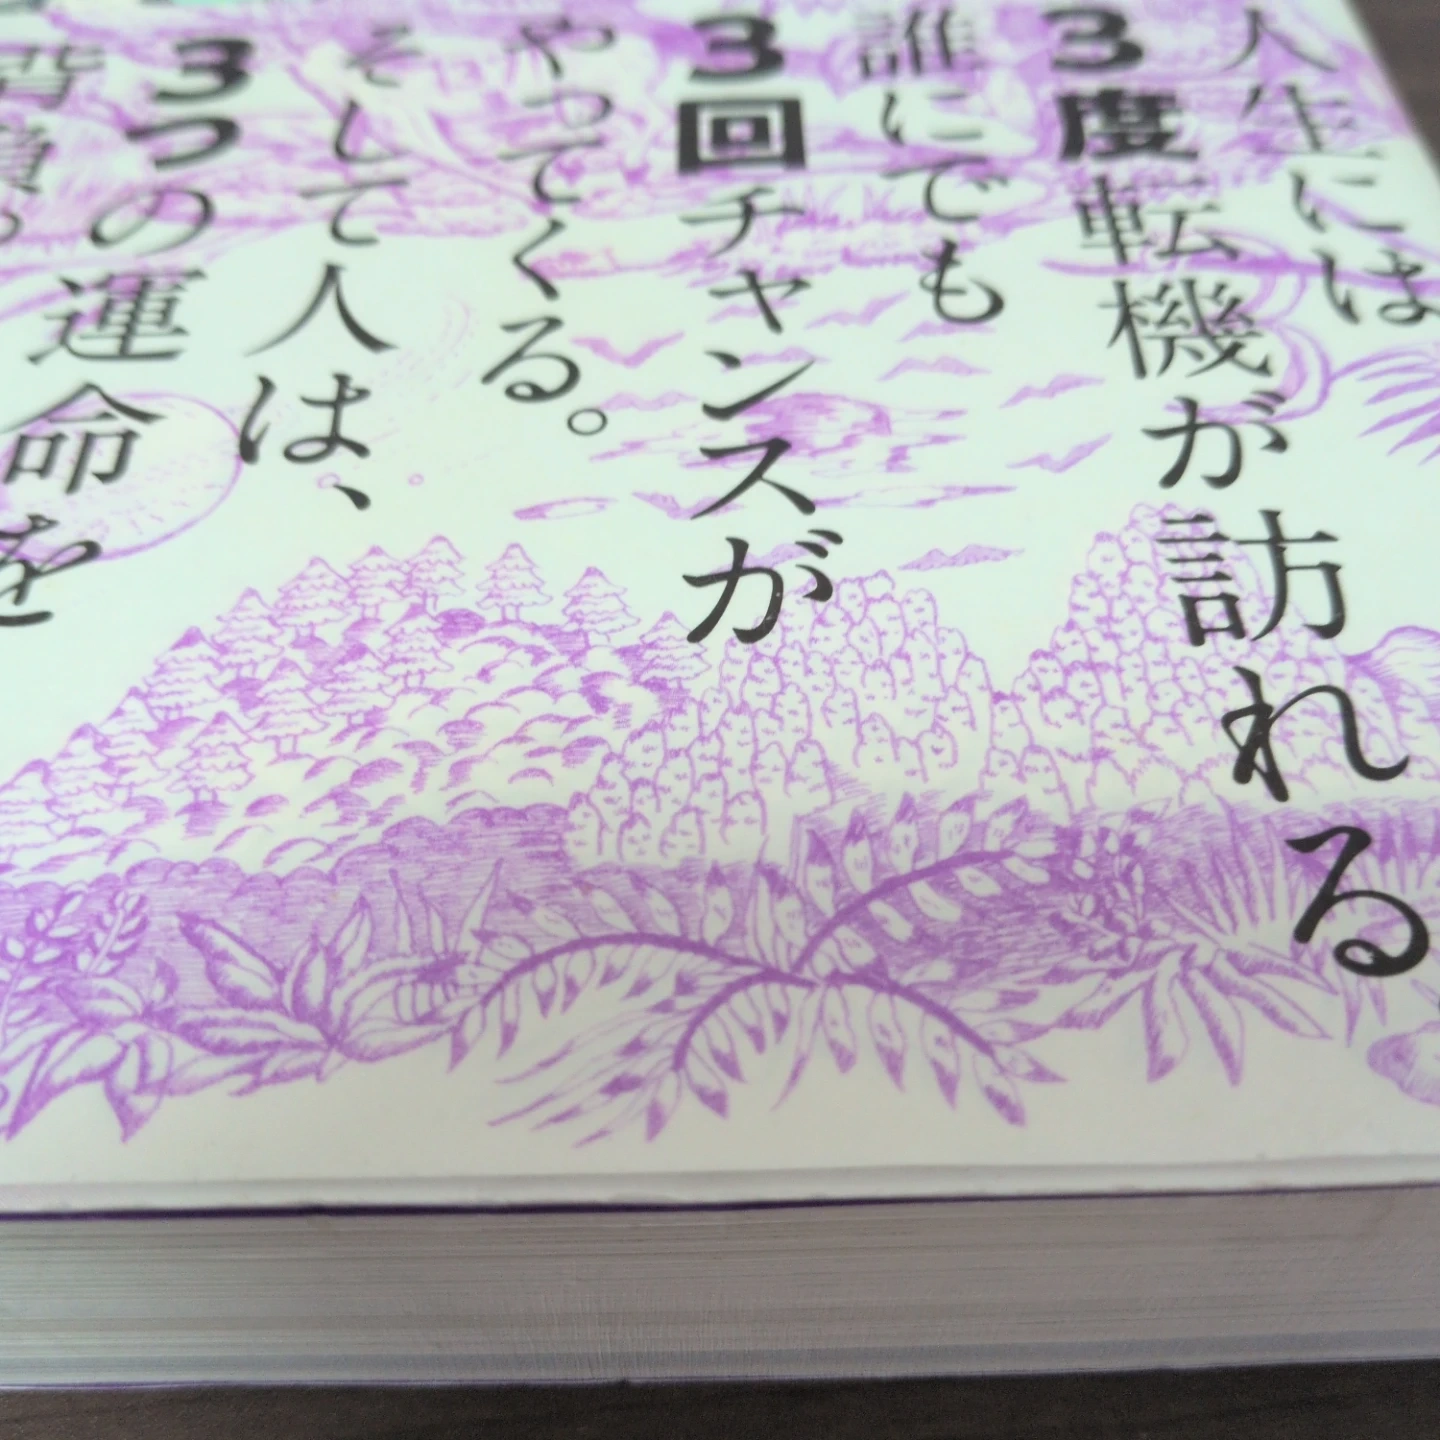 人生には
3度転機が訪れる
誰にでも
3回チャンスが
やってくる。
そして人は、
3つの運命を
背負う